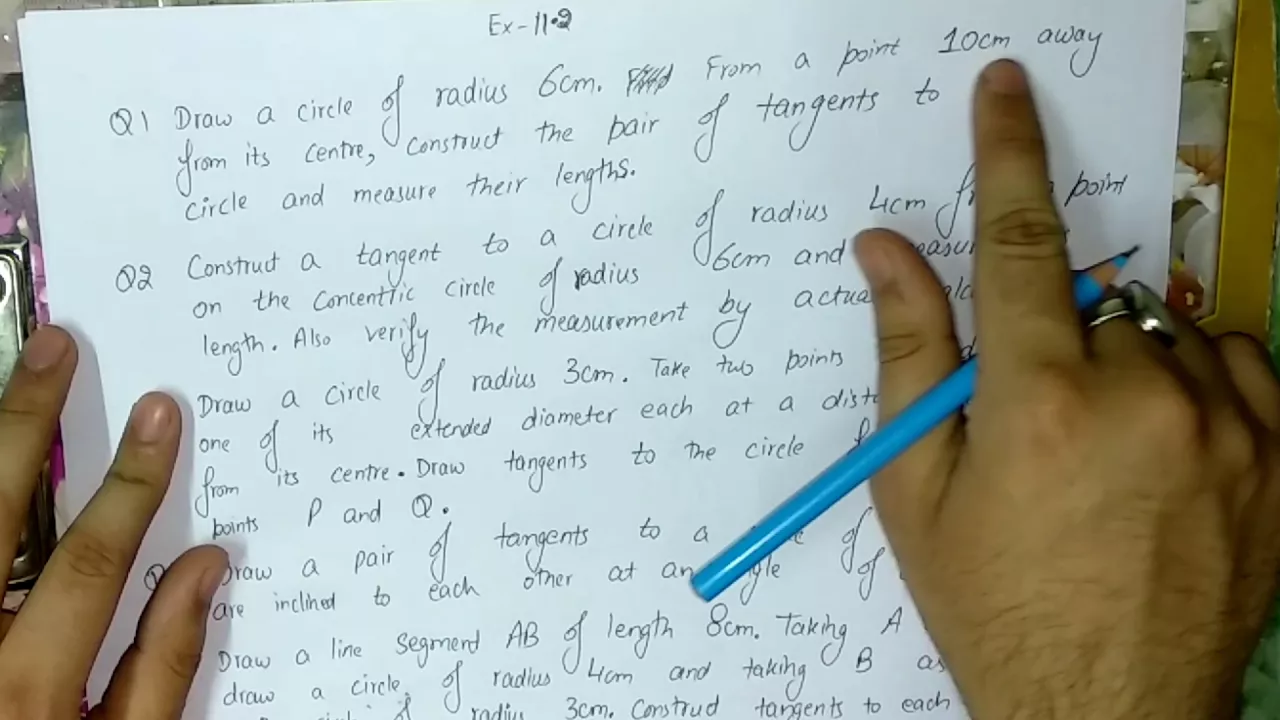 Ex-11.2
Q1 Draw a circle of radius 6cm. From a point 10cm away
from its centre, construct the pair of tangents to
circle and measure their lengths.
Q2 Construct a tangent to a circle of radius 4cm point
on the concentric circle of radius 6cm and
length. Also verify the measurement by
Draw a circle of radius 3cm. Take two points
one of its extended diameter each at a
from its centre. Draw tangents to the circle
points P and Q.
Draw a pair of tangents to a of
are inclined to each other at an of
Draw a line segment AB of length 8cm. Taking A
draw a circle of radius 4cm and taking B as
radius 3cm. Construct tangents to each